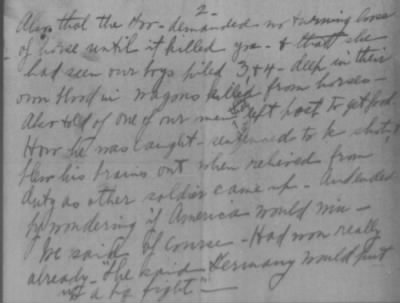 - 2 -
Also that the Hor- demanded no turning loose
of horse until it killed you - & that she
had seen our boys piled 3, & 4 - deep in their
own blood in wagons killed from horses -
Also told of one of our men left post to get food
How he was caught - sentenced to be shot, &
blew his brains out when relieved from
duty as other soldier came up - And ended
by wondering if America would win -
We said of course - Had won really
already - He said Germany would put
up a big fight" -